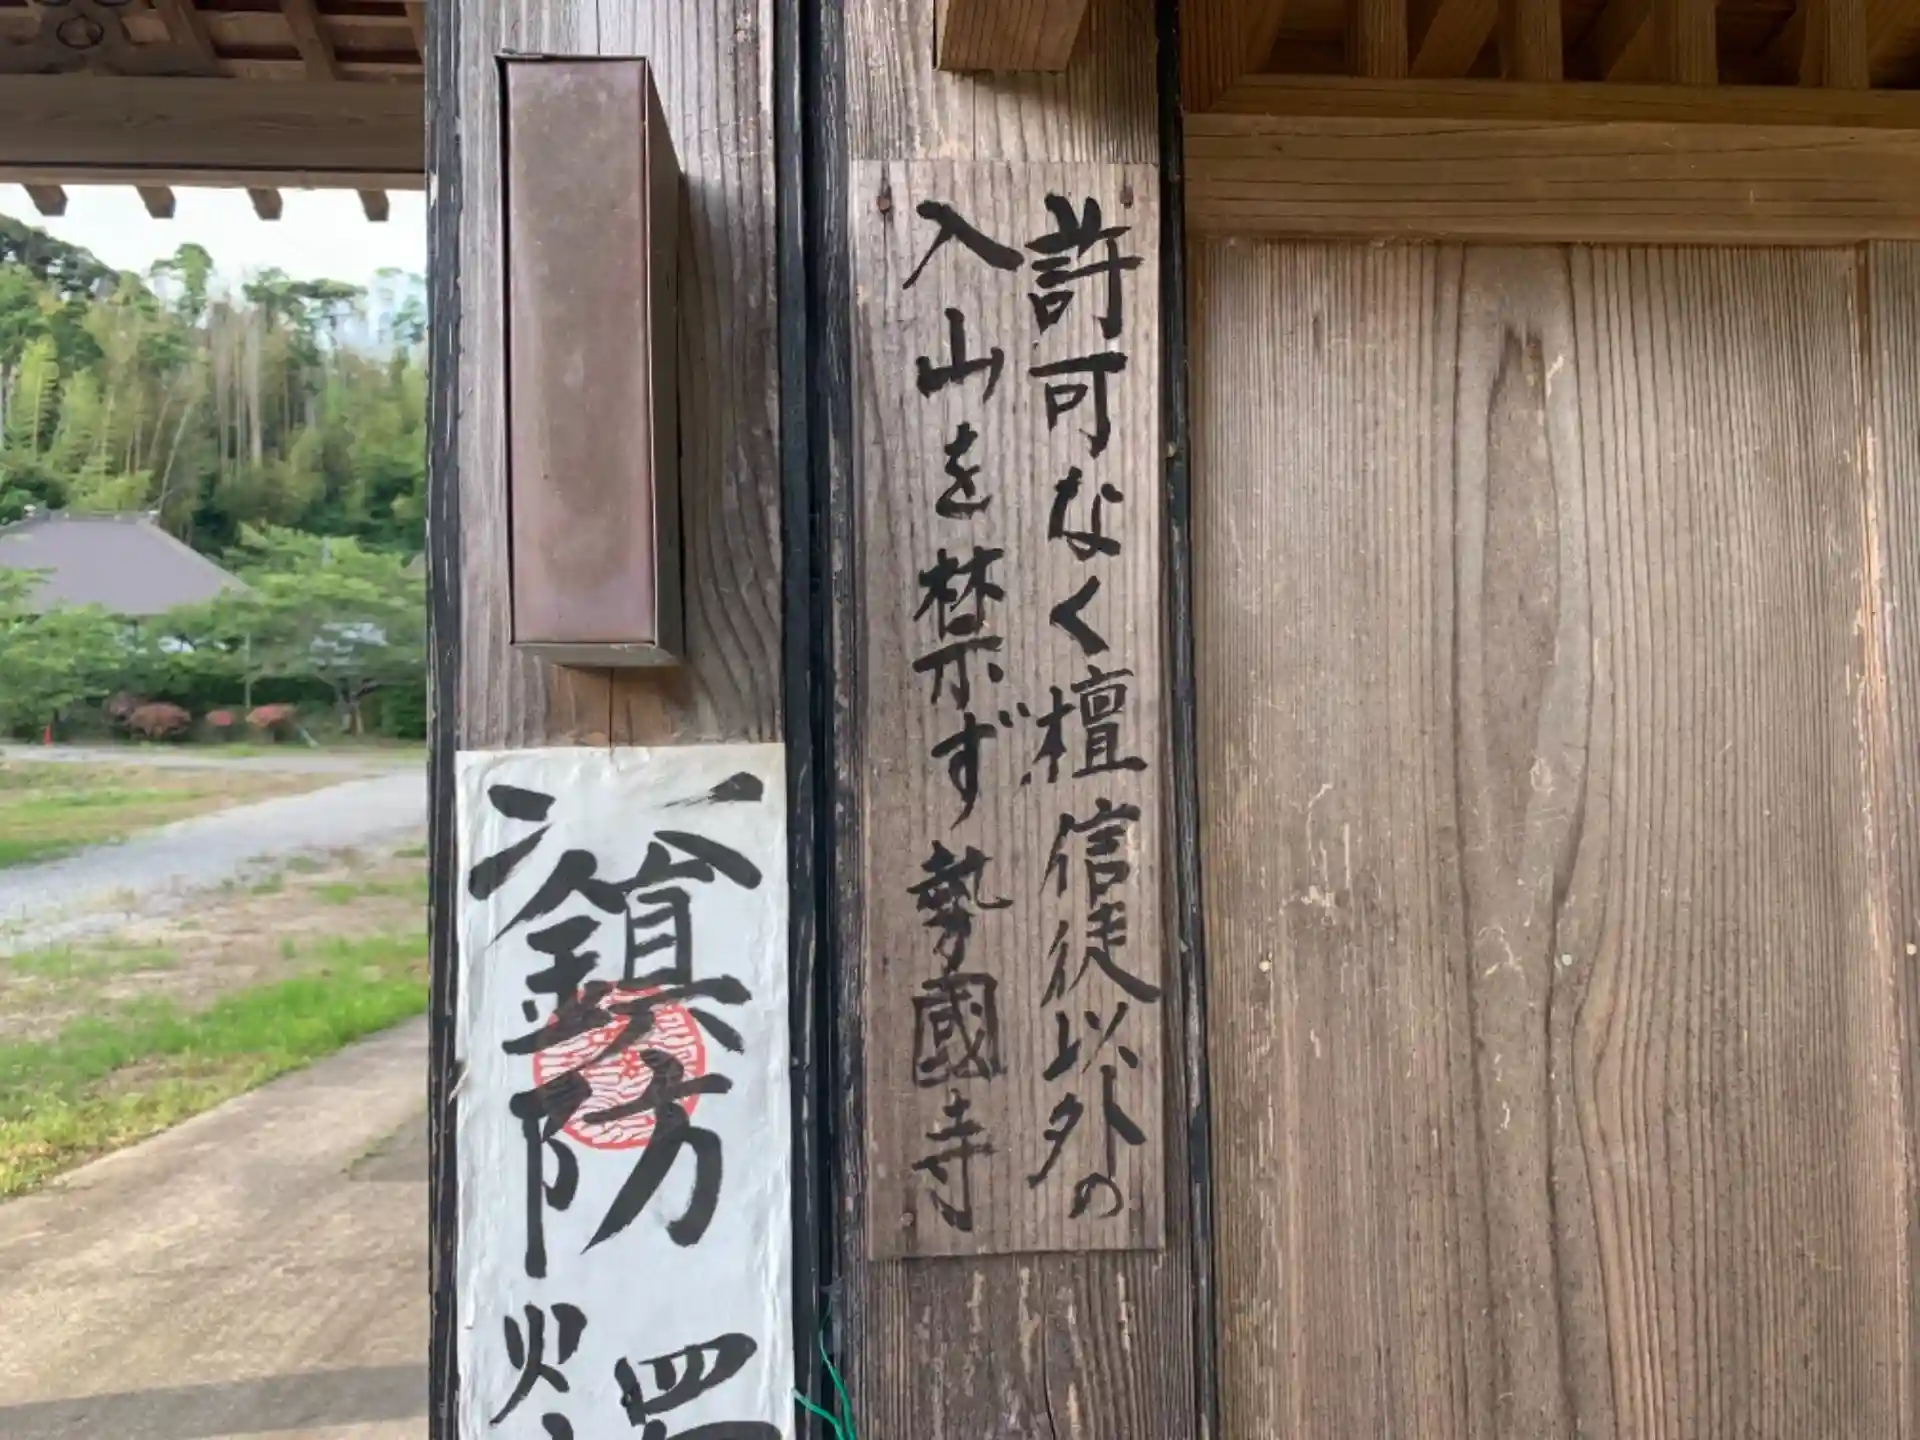 許可なく檀信徒以外の
入山を禁ず 勢國寺
鎮防火